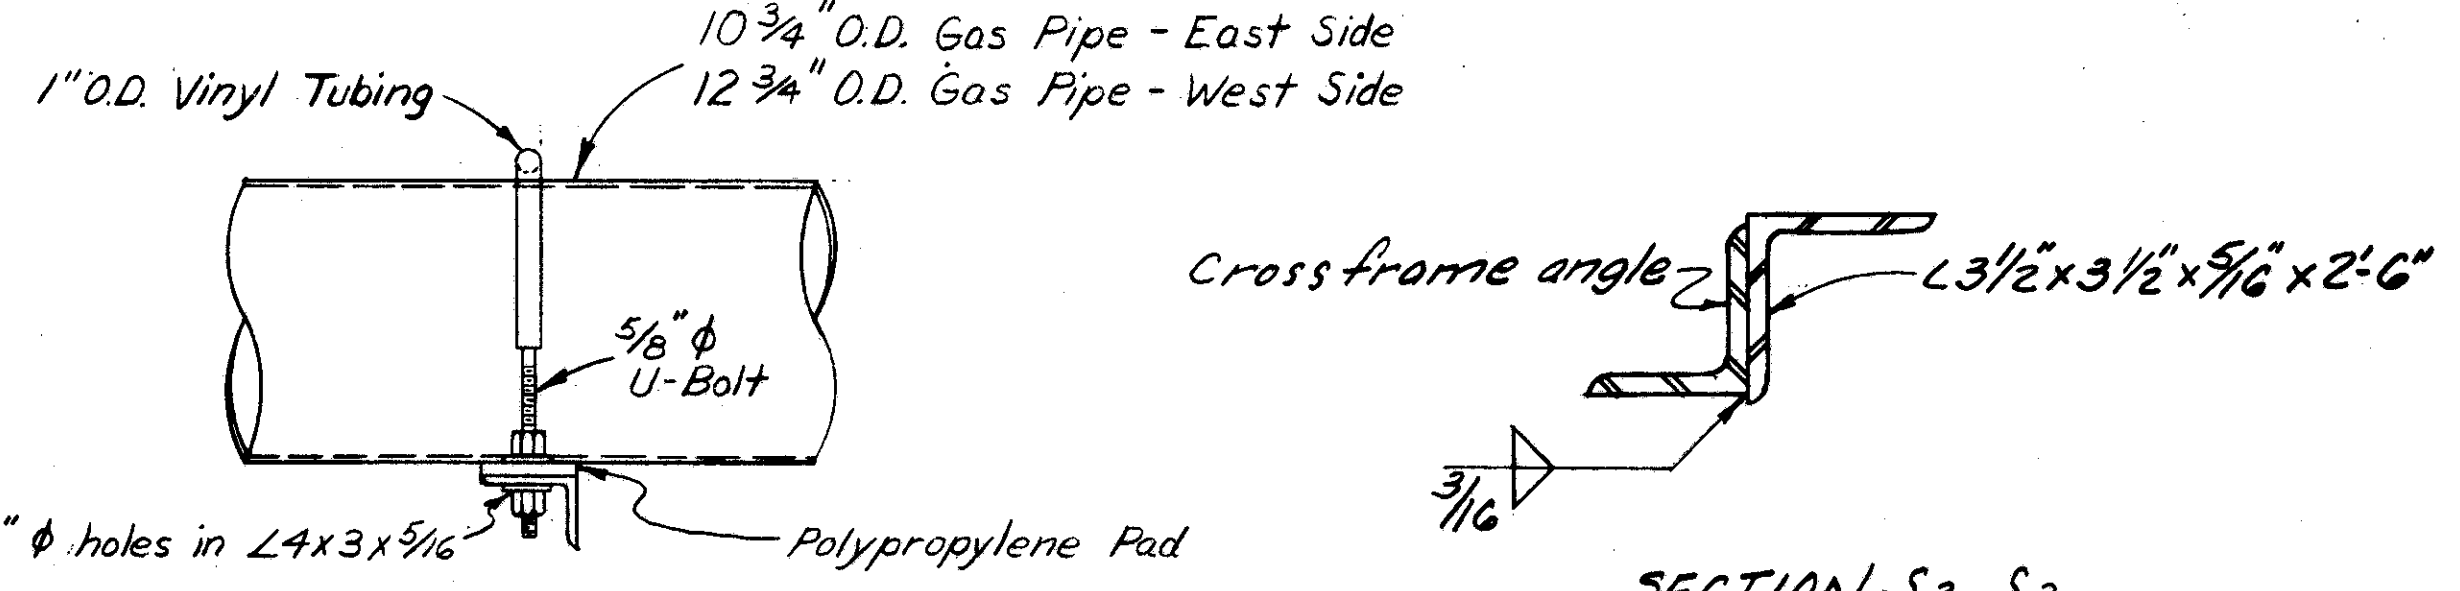 10 3/4" O.D. Gas Pipe - East Side
12 3/4" O.D. Gas Pipe - West Side
1" O.D. Vinyl Tubing
5/8" ϕ
U-Bolt
" ϕ holes in ∠4x3x5/16
Polypropylene Pad
Cross frame angle
∠3 1/2" x 3 1/2" x 5/16" x 2'-6"
3/16
SECTION S3-S3